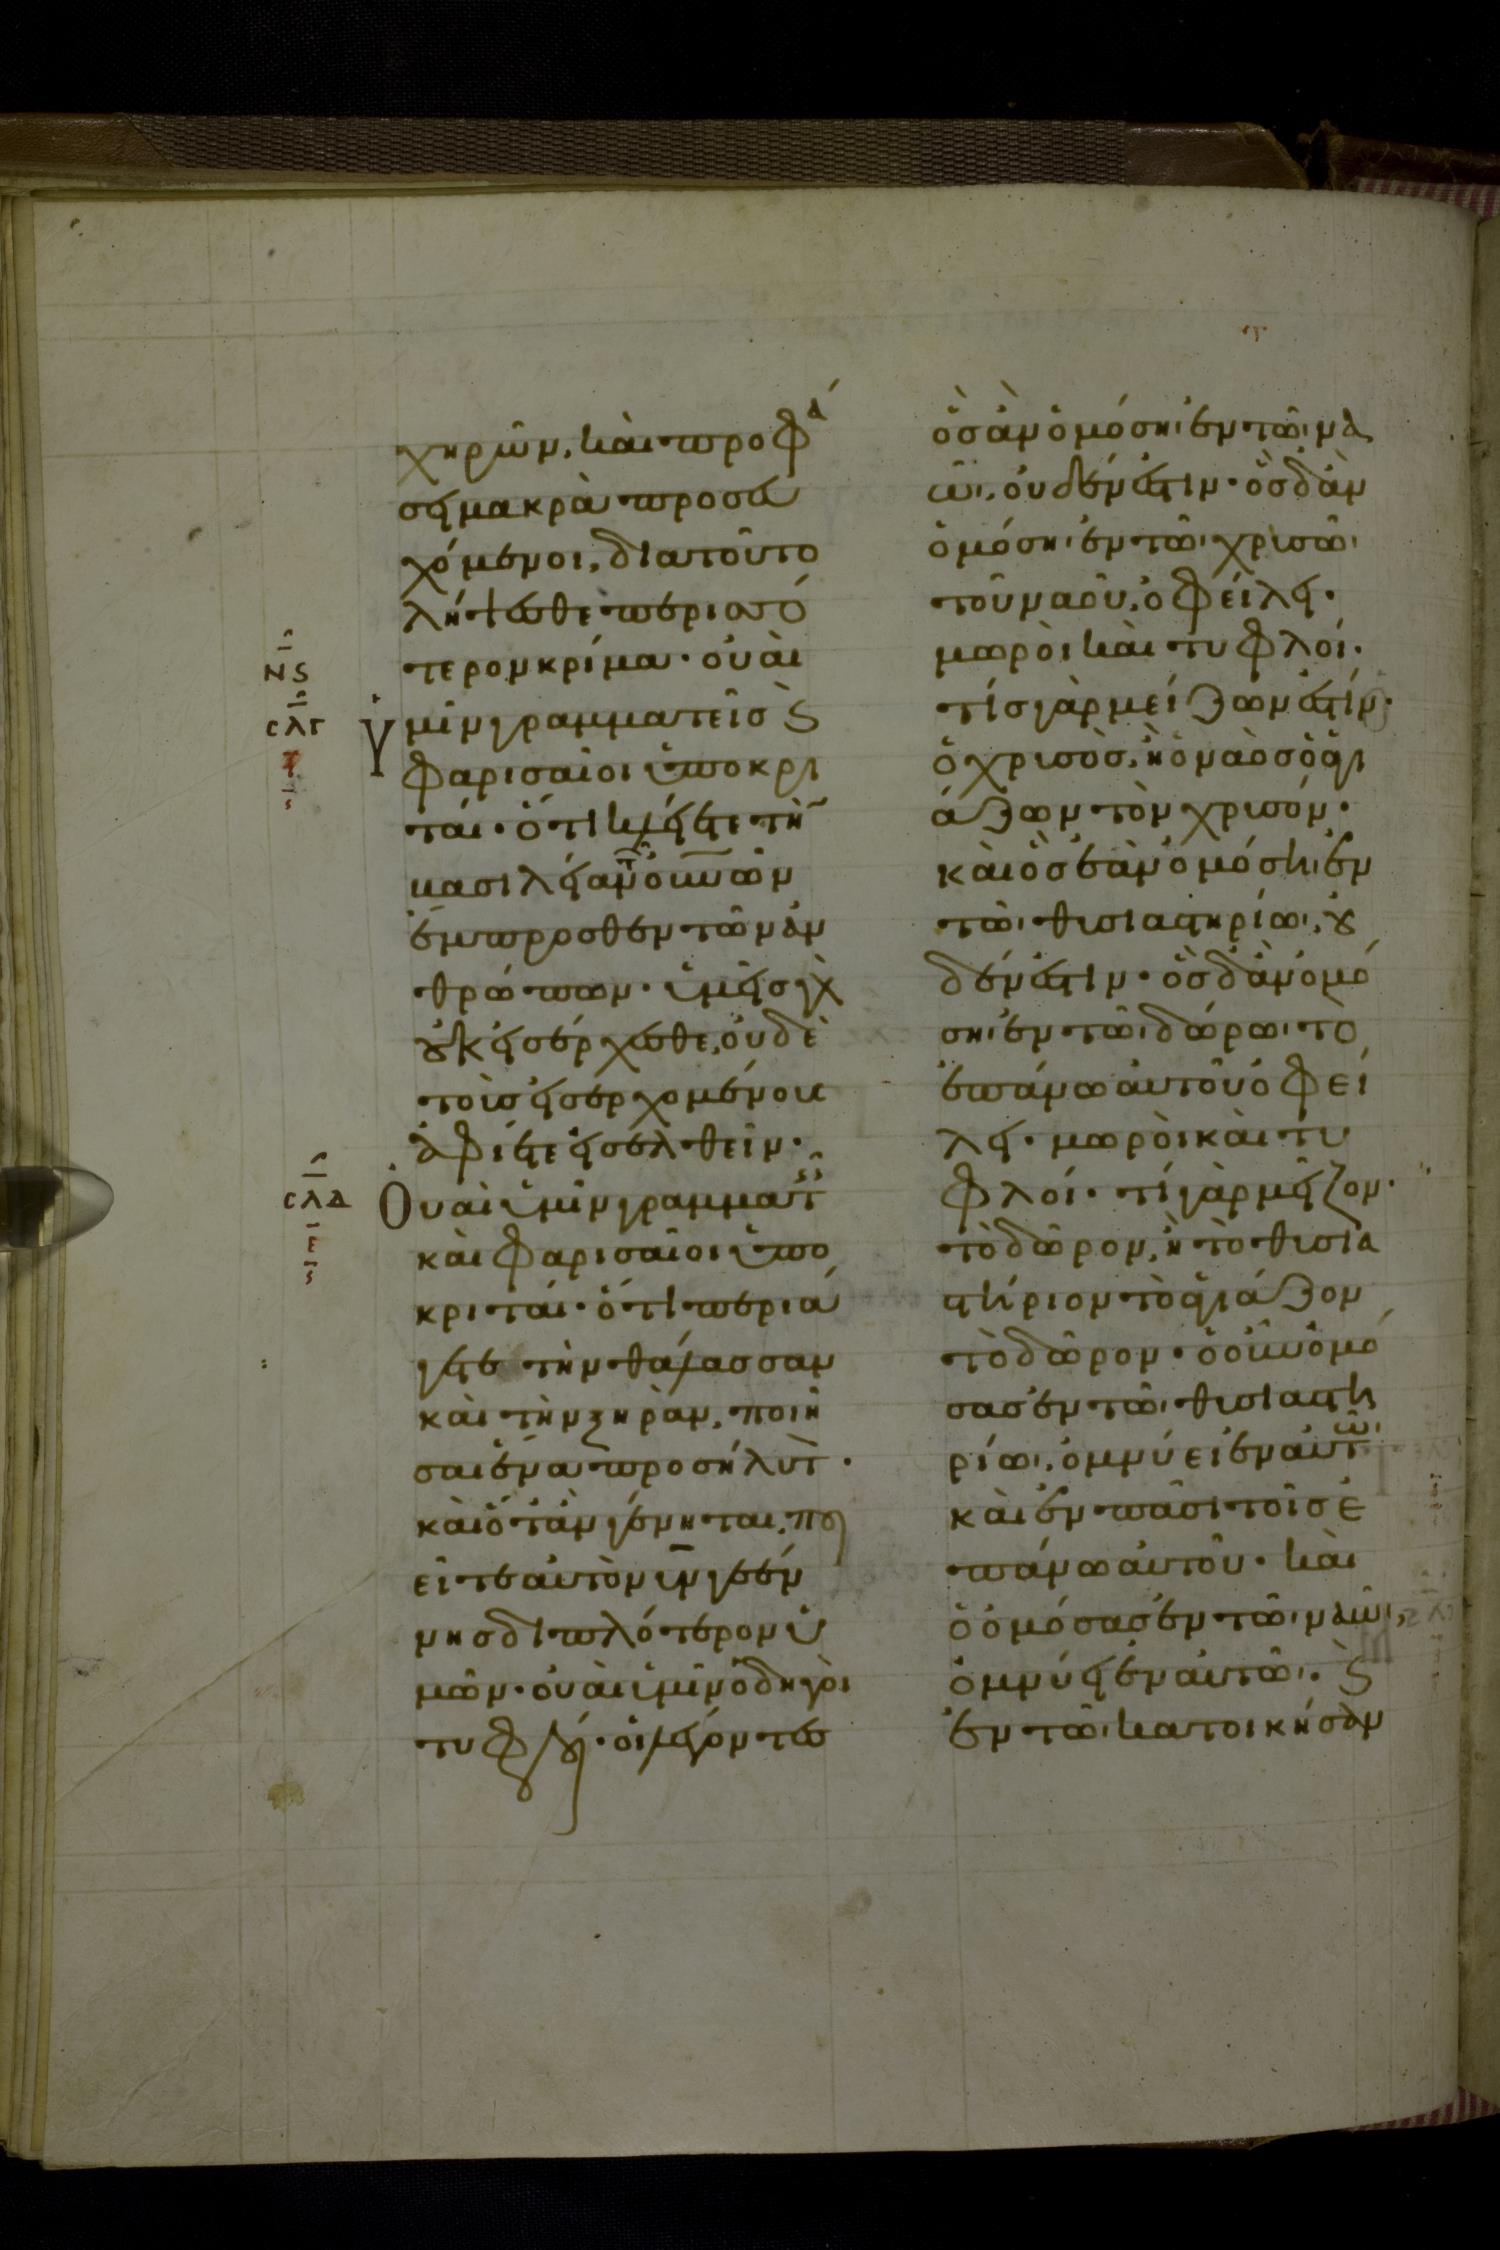 χηρῶν, καὶ προφά
σει μακρὰ προσευ
χόμενοι, διατοῦτο
λήψεσθε περισσό
τερον κρίμα· οὐαὶ
ΝϚ
ϹΛΓ
ὑμῖν γραμματεῖς Ϛ
φαρισαῖοι ὑποκρι
ταί· ὅτι κλείετε τὴν
βασιλείαν τῶν οὐνῶν
ἔμπροσθεν τῶν ἀν
θρώπων· ὑμεῖς γὰρ
οὐκ εἰσέρχεσθε, οὐδὲ
τοὺς εἰσερχομένους
ἀφίετε εἰσελθεῖν·
ϹΛΔ
Ε
Ϛ
Οὐαὶ ὑμῖν γραμματεῖς
καὶ φαρισαῖοι ὑπο
κριταί· ὅτι περιά
γετε τὴν θάλασσαν
καὶ τὴν ξηρὰν, ποιῆ
σαι ἕνα προσήλυτ·
καὶ ὅταν γένηται, ποι
εῖτε αὐτὸν υἱὸν γεέν
νης διπλότερον ὑ
μῶν· οὐαὶ ὑμῖν ὁδηγοὶ
τυφλοί· οἱ λέγοντες
ὃς ἂν ὀμόσηι ἐν τῶι να
ῶι, οὐδέν ἐστιν· ὃς δ' ἂν
ὀμόσηι ἐν τῶι χρυσῶι
τοῦ ναοῦ, ὀφείλει·
μωροὶ καὶ τυφλοί·
τίς γὰρ μείζων ἐστίν·
ὁ χρυσὸς, ἢ ὁ ναὸς ὁ ἁγι
άζων τὸν χρυσόν·
καὶ ὃς ἐὰν ὀμόσηι ἐν
τῶι θυσιαστηρίωι, οὐ
δέν ἐστιν· ὃς δ' ἂν ὀμό
σηι ἐν τῶι δώρωι τῶ
ἐπάνω αὐτοῦ ὀφεί
λει· μωροὶ καὶ τυ
φλοί· τί γὰρ μεῖζον·
τὸ δῶρον, ἢ τὸ θυσια
στήριον τὸ ἁγιάζον
τὸ δῶρον· ὁ οὖν ὀμό
σας ἐν τῶι θυσιαστη
ρίωι, ὀμνύει ἐν αὐτῶι
καὶ ἐν πᾶσι τοῖς ἐ
πάνω αὐτοῦ· καὶ
ὁ ὀμόσας ἐν τῶι ναῶι,
ὀμνύει ἐν αὐτῶι· Ϛ
ἐν τῶι κατοικήσαν